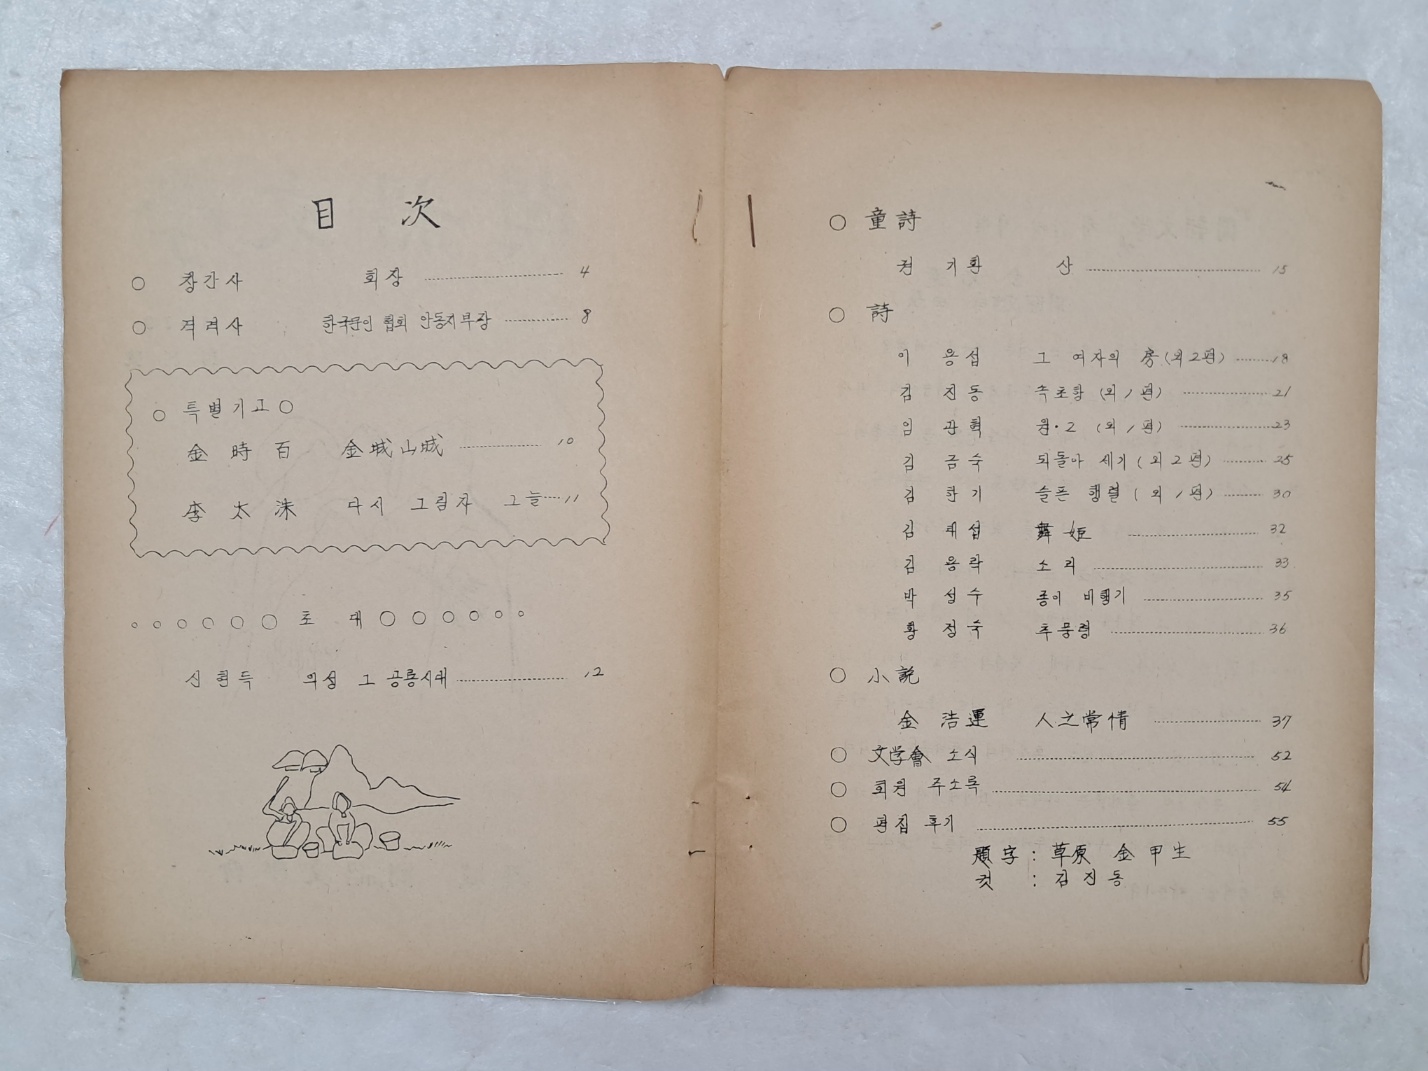 目 次
○ 창간사 회장 4
○ 격려사 한국문인 협회 안동지부장 8
○ 특별기고 ○
金 時 百 金城山城 10
李 太 洙 다시 그림자 그늘 11
○○○○○○ 초 대 ○○○○○○
신 현 득 의성 그 공룡시대 12
○ 童詩
권 기환 산 15
○ 詩
이 용 섭 그 여자의 房 (외 2편) 18
김 진 동 속초항 (외 1 편) 21
임 관 혁 원·2 (외 1 편) 23
김 금 숙 되돌아 세기 (외 2 편) 25
김 한 기 슬픈 행렬 (외 1 편) 30
김 태 섭 舞 姬 32
김 용 락 소 리 33
박 성 수 종이 비행기 35
황 정 숙 추풍령 36
○ 小 説
金 浩 運 人之常情 37
○ 文学會 소식 52
○ 회원 주소록 54
○ 편집 후기 55
題字 : 草原 金 甲 生
컷 : 김 진 동